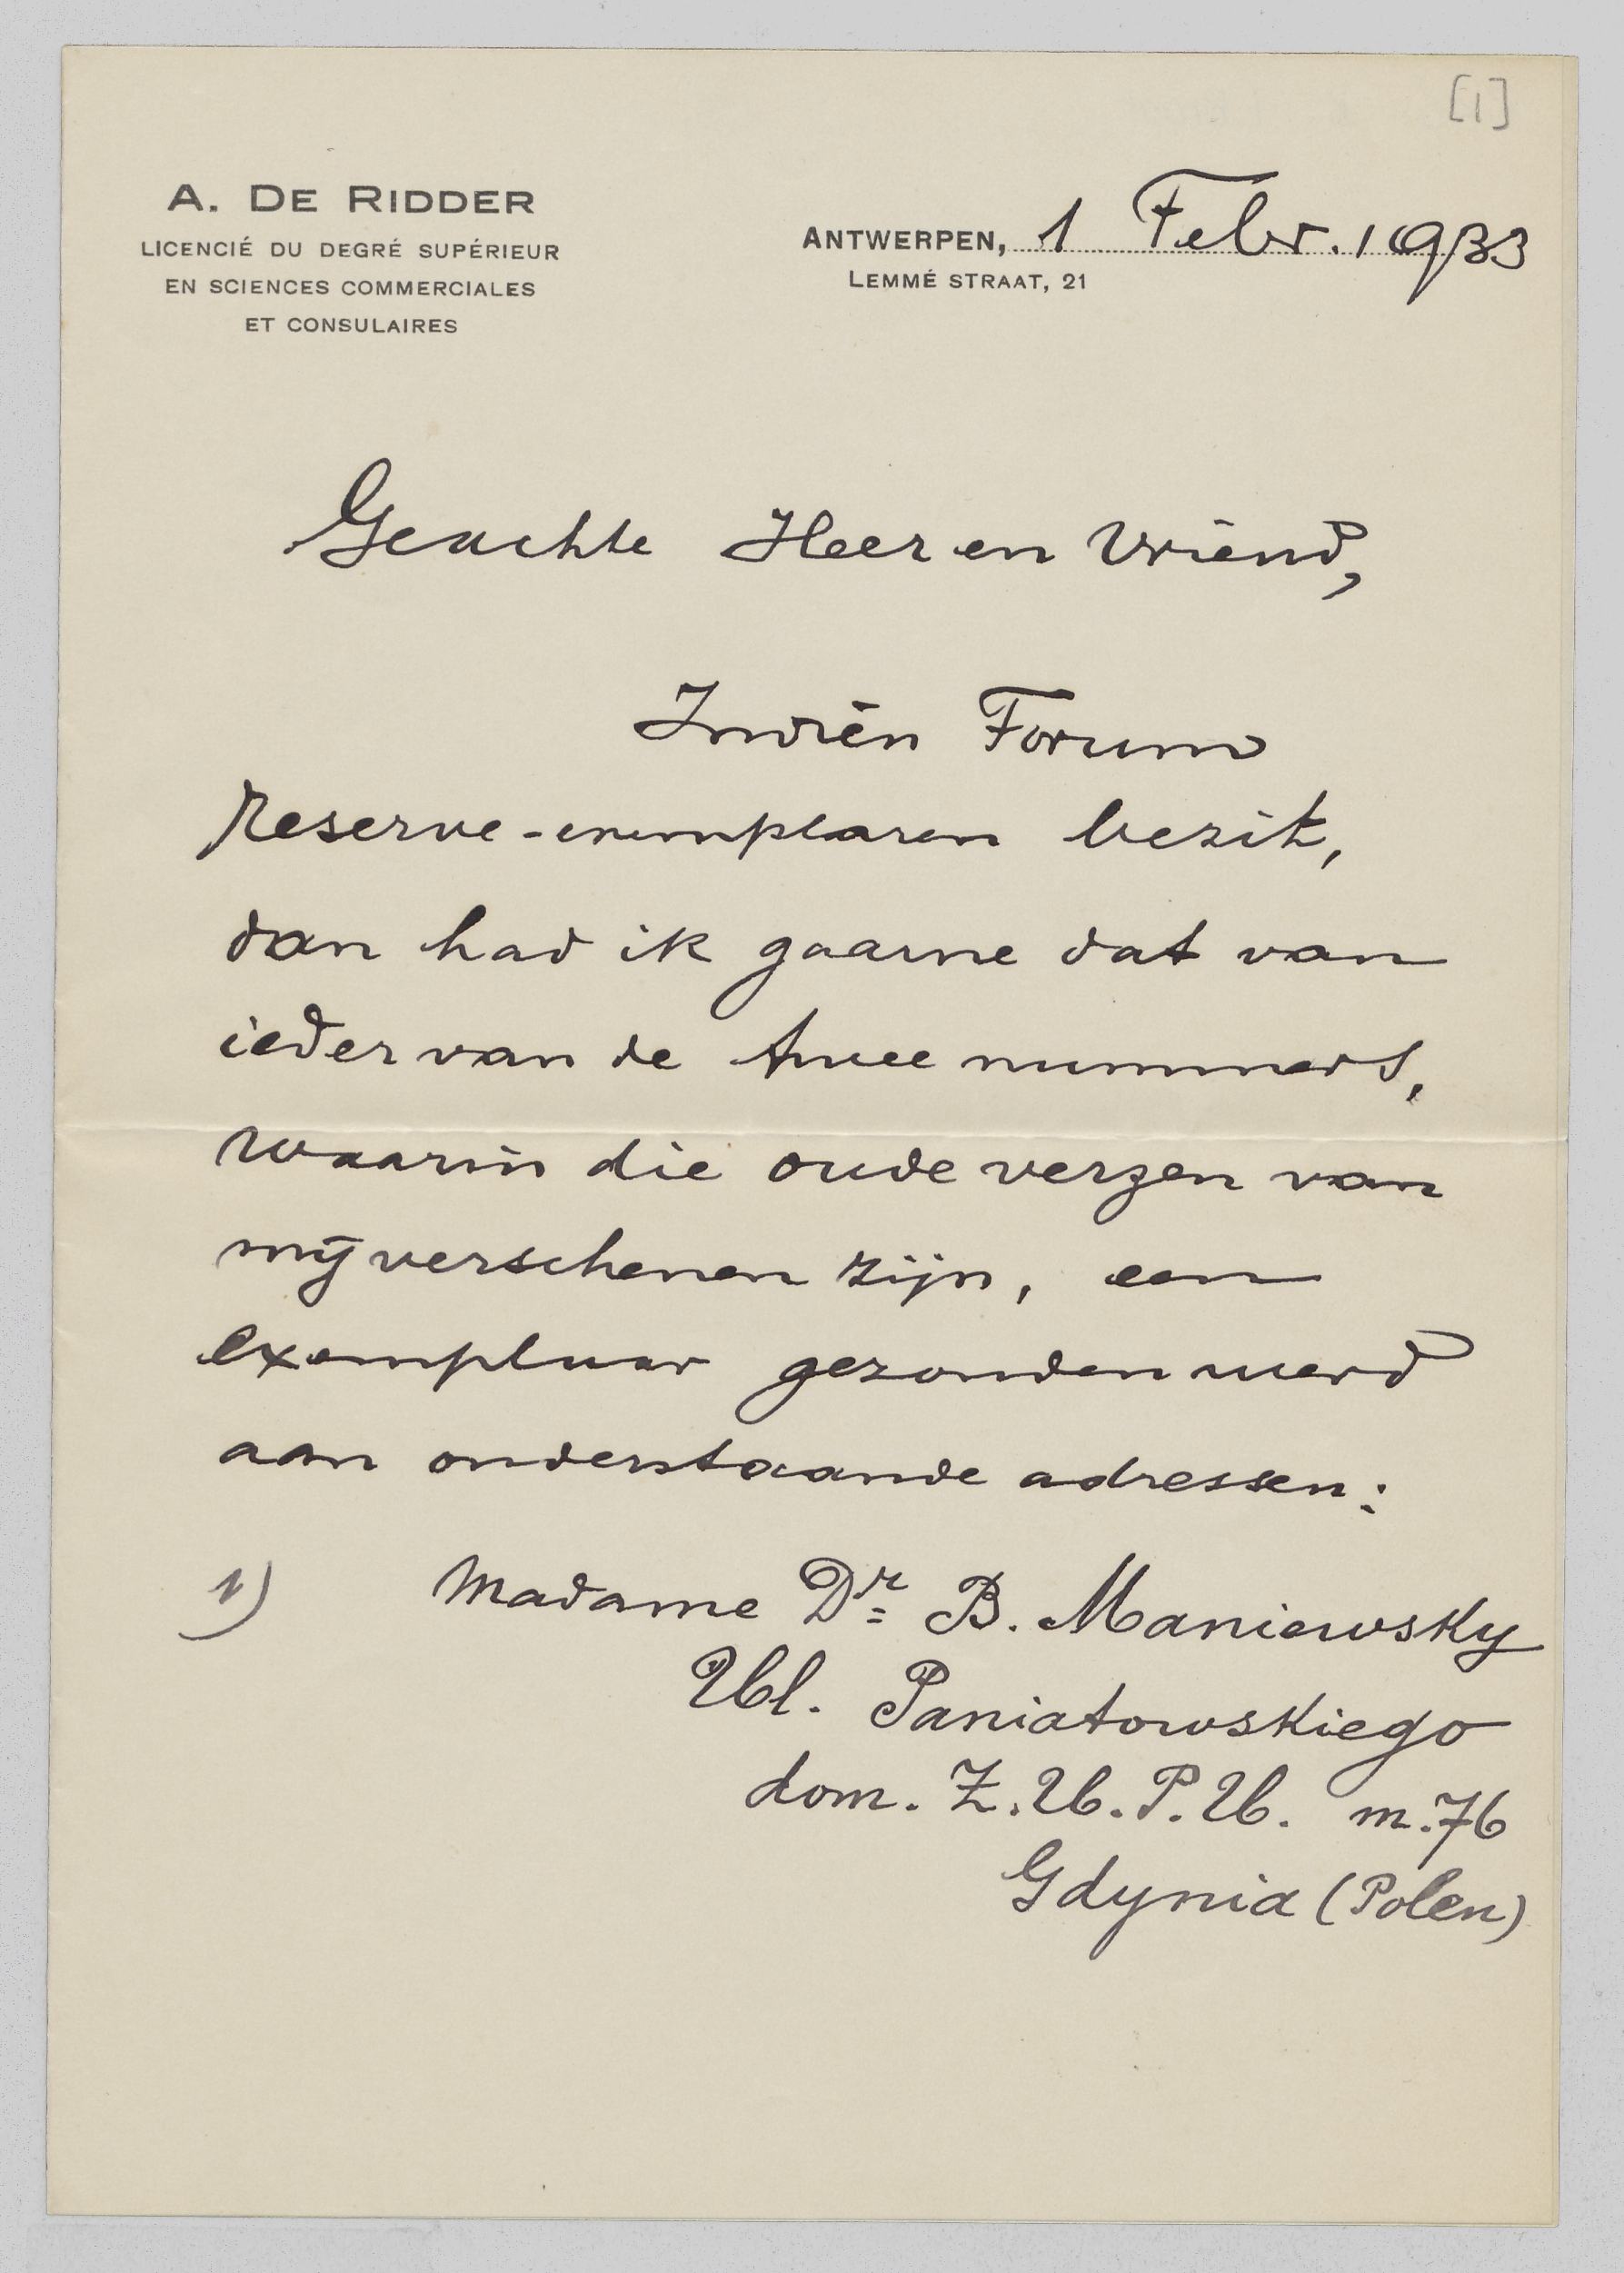 [1]
A. DE RIDDER
LICENCIÉ DU DEGRÉ SUPÉRIEUR
EN SCIENCES COMMERCIALES
ET CONSULAIRES
ANTWERPEN, 1 Febr. 1933
LEMMÉ STRAAT, 21
Geachte Heer en Vriend,
Indien Forum
reserve-exemplaren bezit,
dan had ik gaarne dat van
ieder van de twee nummers,
waarin die oude verzen van
mij verschenen zijn, een
exemplaar gezonden werd
aan onderstaande adressen:
1) Madame Dr B. Maniewsky
Ul. Paniatowskiego
dom. Z.U.P.U. m.76
Gdynia (Polen)